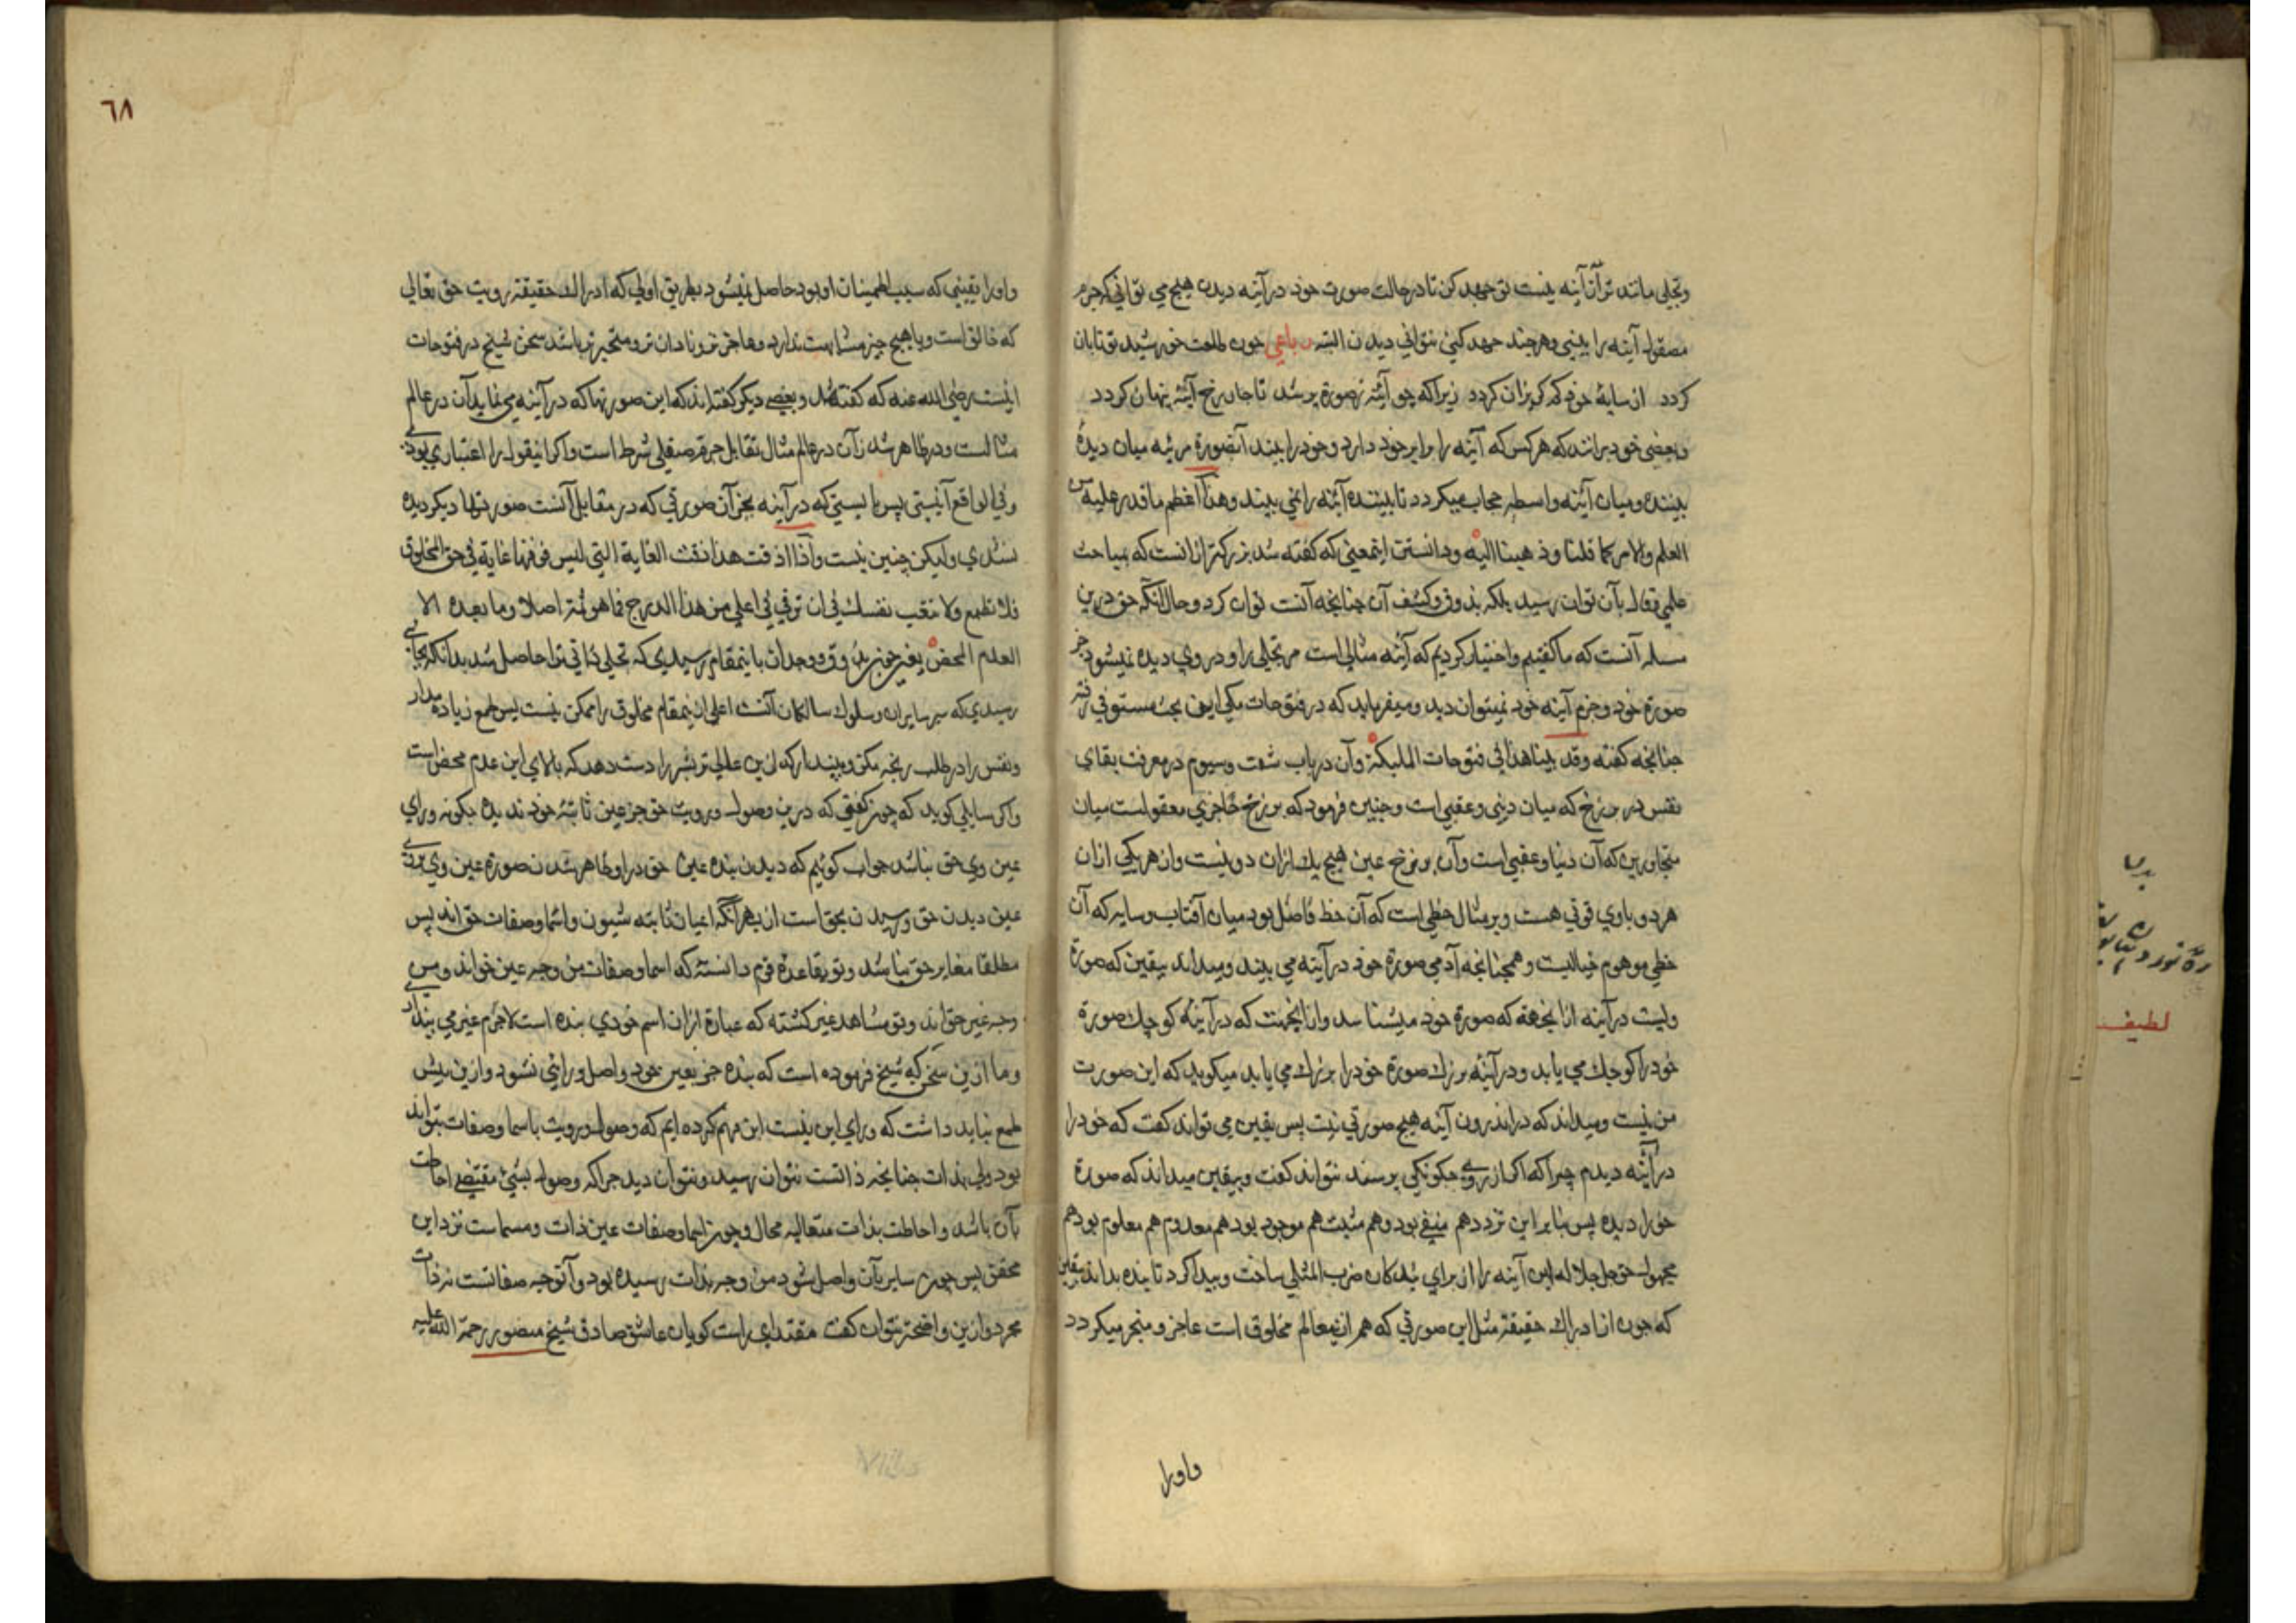 وتجلی مانند تر از آینه نیست تو جهد کن تا در حالت صورت خود در آینه دیدن هیچ می توانی که جرم
مصقول آینه را ببینی وهر چند جهد کنی نتوانی دیدن البته رباعی چون طلعت خورشید تو تابان
کردد از سایهٔ خود که کریزان کردد زیرا که چو آینه ز صورة پر شد تا جان رخ آینه پنهان کردد
وبعضی خود برانند که هر کس که آینه را برابر خود دارد وخود را بیند آنصورة مرئیه میان دیدهٔ
بیننده ومیان آینه واسطه حجاب میکردد تا بیننده آینه را نمی بیند وهذا اعظم ما قدر علیه من
العلم والامر کما قلنا وذهبنا الیه ودانستن اینمعنی که کفته شد بزرکتر از انست که بمباحث
علمی وقال بآن توان رسید بلکه بذوق وکشف آن چنانچه آنست توان کرد وحال آنکه حق درین
مسله آنست که ما کفتیم واختیار کردیم که آینه مثالی است مر تجلی را ودر وی دیده نمیشود جز
صورة خود وجرم آینه خود نمیتوان دید ومیفرماید که در فتوحات مکی این بحث مستوفی رفته
چنانچه کفته وقد بینا هذا فی فتوحات الملیکة وآن در باب شصت وسیوم در معرفت بقای
نفس در برزخ که میان دینی وعقبی است وچنین فرمود که برزخ حاجزی معقولست میان
متجاورین که آن دنیا وعقبی است وآن برزخ عین هیچ یك ازان دو نیست واز هر یکی ازان
هر دو با وی قوتی هست وبر مثال خطی است که آن خط فاصل بود میان آفتاب وسایه که آن
خطی موهوم خیالیست وهمچنانچه آدمی صورة خود در آینه می بیند ومیداند بیقین که صورة
ولیست در آینه ازانجهة که صورة خود میشناسد وازانجهت که در آینهٔ کوچك صورة
خود را کوچك می یابد ودر آینهٔ بزرك صورة خود را بزرك می یابد میکوید که این صورت
من نیست ومیداند که در اندرون آینه هیچ صورتی نیست پس بیقین می تواند کفت که خود را
در آینه دیدم چرا که اکر از روی چکونکی پرسند نتواند کفت وبیقین میداند که صورة
خود را دیده پس بنا بر این تردد هم منفی بود وهم مثبت هم موجود بود هم معدوم هم معلوم بود هم
مجهول حق جل جلاله این آینه را از برای بندکان ضرب المثلی ساخت وپیدا کرد تا بنده بداند بیقین
که چون از ادراك حقیقة مثل این صورتی که هم از ینعالم مخلوق است عاجز ومتحیر میکردد
واورا
٦٨
واورا یقینی که سبب اطمینان او بود حاصل نمیشود بطریق اولی که ادراك حقیقة رویت حق تعالی
که خالق است وبا هیچ چیز مشابهت ندارد وعاجز تر ونادان تر ومتحیر تر باشد سخن شیخ در فتوحات
اینست رضی الله عنه که کفته شد وبعضی دیکر کفته اند که این صورتها که در آینه می نماید آن در عالم
مثالست ودر ظاهر شدن آن در عالم مثال تقابل جرم صیقلی شرط است واکر اینقول را اعتباری بودی
وفی الواقع آنیستی پس بایستی که در آینه بجز آن صورتی که در مقابل آنست صورتها دیکر دیده
شدی ولیکن چنین نیست واذا اذقت هذا ذقت الغایة التی لیس فوقها غایة فی حق المخلوق
فلا تطمع ولا تتعب نفسك فی ان ترقی فی اعلی من هذا الدرج فما هو ثمة اصلا وما بعده الا
العدم المحض یعنی چون بذوق ووجدان باینمقام رسیدی که تجلی ذاتی ترا حاصل شد بدانکه بجایی
رسیدی که سیر سایران وسلوك سالکان آنست اعلی از ینمقام مخلوق را ممکن نیست پس طمع زیاده مدار
ونفس را در طلب رنجه مکن وپندار که ازین عالی تر بشر را دست دهد که بالای این عدم محض است
واکر سایلی کوید که چون کفتی که درین وصول ورویت حق جز عین ثابتهٔ خود ندیده بکونه ورای
عین وی حق نباشد جواب کوییم که دیدن بنده عین حق در او ظاهر شدن صورة عین وی
عین دیدن حق ورسیدن بحق است از بهر آنکه اعیان ثابته شیون واسما وصفات حق اند پس
مطلقا مغایر حق نباشد وتو بقاعدهٔ قوم دانستهٔ که اسما وصفات من وجه عین خواند ومن
وجه غیر حق اند وتو مشاهد غیر کشته که عبارة ازان اسم خودی بنده است لاجرم غیر می بیند
وما ازین سخن که شیخ فرموده است که بنده جز بعین خود واصل ورائی نشود وازین بیش
طمع نباید داشت که ورای این نیست این فهم کرده ایم که وصول ورویت باسما وصفات تواند
بود ولی بذات چنانچه ذاتست نتوان رسید ونتوان دید چرا که وصول بشیئ مقتضی احاطت
بآن باشد واحاطت بذات متعالیه محال وچون اسما وصفات عین ذات ومسماست نزد این
محقق پس چون سایر بآن واصل شود من وجه بذات رسیده بود وآنوجه صفاتست نه ذات
مجرد وازین واضحتر نتوان کفت مقتدای راست کویان عاشق صادق شیخ منصور رحمة الله علیه
لطیفه